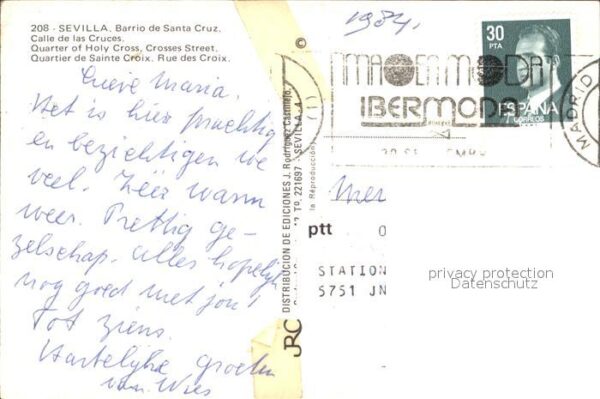 208 - SEVILLA. Barrio de Santa Cruz.
Calle de las Cruces.
Quarter of Holy Cross, Crosses Street.
Quartier de Sainte Croix. Rue des Croix.
Lieve Maria.
Het is hier prachtig
en bezichtigen we
veel. Zéér warm
weer. Prettig ge-
zelschap. Alles hopelijk
nog goed met jou!
Tot ziens.
Hartelijke groeten
van Wies
©
DISTRIBUCION DE EDICIONES J. Rodríguez Castillejo.
TP. 221697 - SEVILLA
la Reproducción
JRC
1984,
30
PTA
ESPAÑA
CORREOS
MODA
IBERMODA
MADRID
Mer
ptt
STATION
5751 JN
privacy protection
Datenschutz